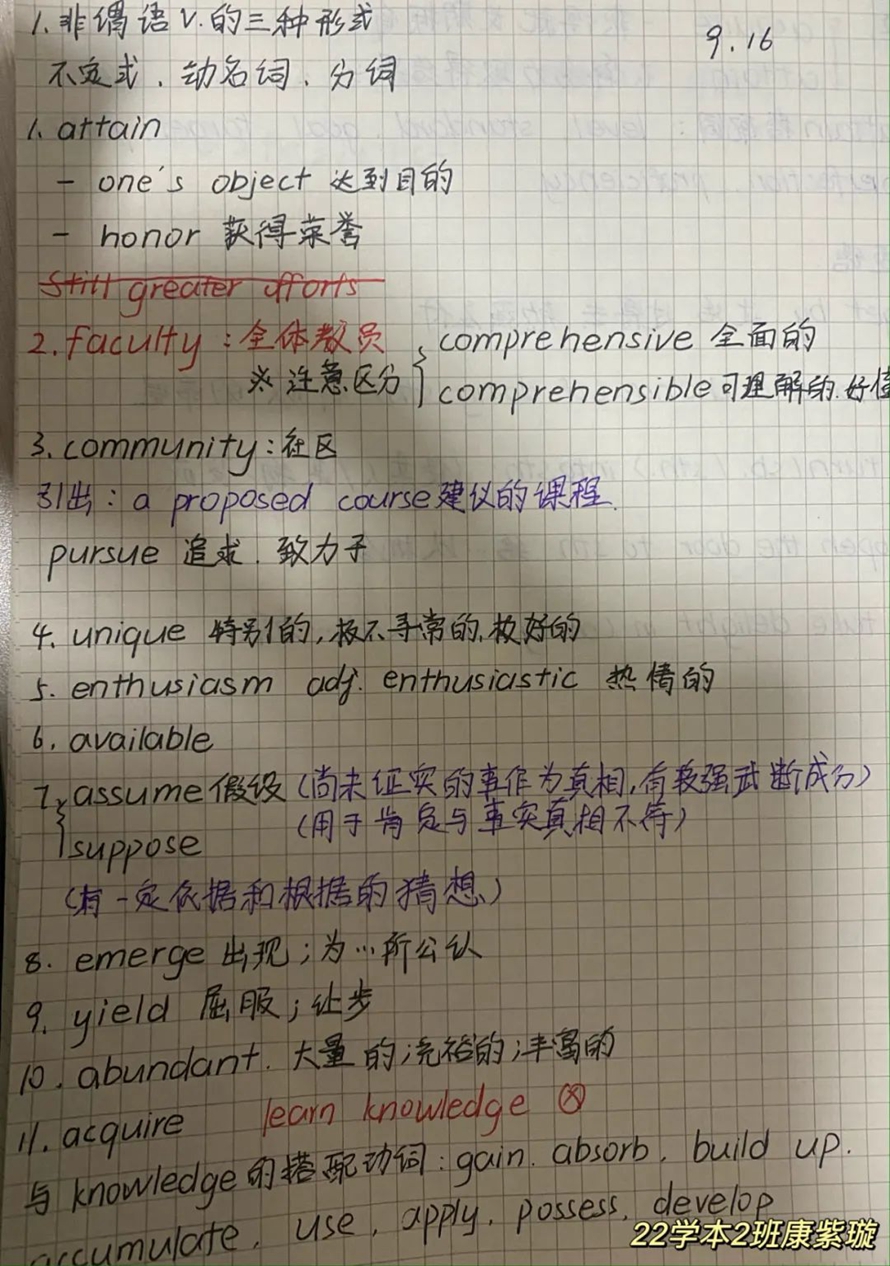 1. 非谓语 v. 的三种形式
9.16
不定式、动名词、分词
1. attain
- one's object 达到目的
- honor 获得荣誉
Still greater efforts
2. faculty：全体教员
※ 注意区分 { comprehensive 全面的
comprehensible 可理解的.好懂
3. community：社区
引出：a proposed course 建议的课程.
pursue 追求、致力于
4. unique 特别的，极不寻常的、极好的
5. enthusiasm adj. enthusiastic 热情的
6. available
7. { assume 假设（尚未证实的事作为真相，有较强武断成分）
（用于肯定与事实真相不符）
suppose
（有一定依据和根据的猜想）
8. emerge 出现；为…所公认
9. yield 屈服；让步
10. abundant. 大量的；充裕的；丰富的
11. acquire learn knowledge ⓧ
与 knowledge 的搭配动词：gain. absorb, build up.
accumulate, use, apply, possess, develop
22学本2班康紫璇